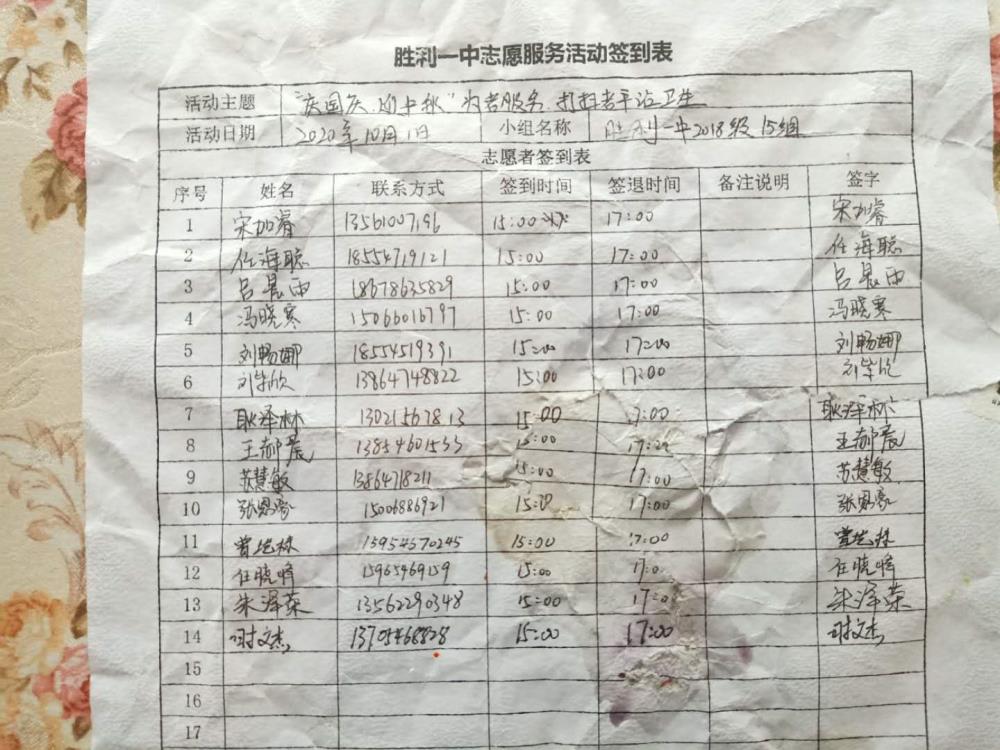 胜利一中志愿服务活动签到表
活动主题 "庆国庆、迎中秋"为老服务、打扫老年站卫生
活动日期 2020年10月1日 小组名称 胜利一中2018级15组
志愿者签到表
序号 姓名 联系方式 签到时间 签退时间 备注说明 签字
1 宋加睿 13561007196 15:00 17:00 宋加睿
2 任海聪 18554719121 15:00 17:00 任海聪
3 吕晨雨 18678635829 15:00 17:00 吕晨雨
4 冯晓寒 15066016797 15:00 17:00 冯晓寒
5 刘畅娜 18554519391 15:00 17:00 刘畅娜
6 刘学欣 13864748822 15:00 17:00 刘学欣
7 耿泽林 13021567813 15:00 17:00 耿泽林
8 王郝晨 13854601533 15:00 王郝晨
9 苏慧敏 13864718211 15:00 17:00 苏慧敏
10 张恩豪 15006886921 15:00 17:00 张恩豪
11 林 15954570245 15:00 17:00 林
12 任晓峰 15965469159 15:00 17:0 任晓峰
13 朱泽荣 13562290348 15:00 17:0 朱泽荣
14 时文杰 13705468828 15:00 17:00 时文杰
15
16
17